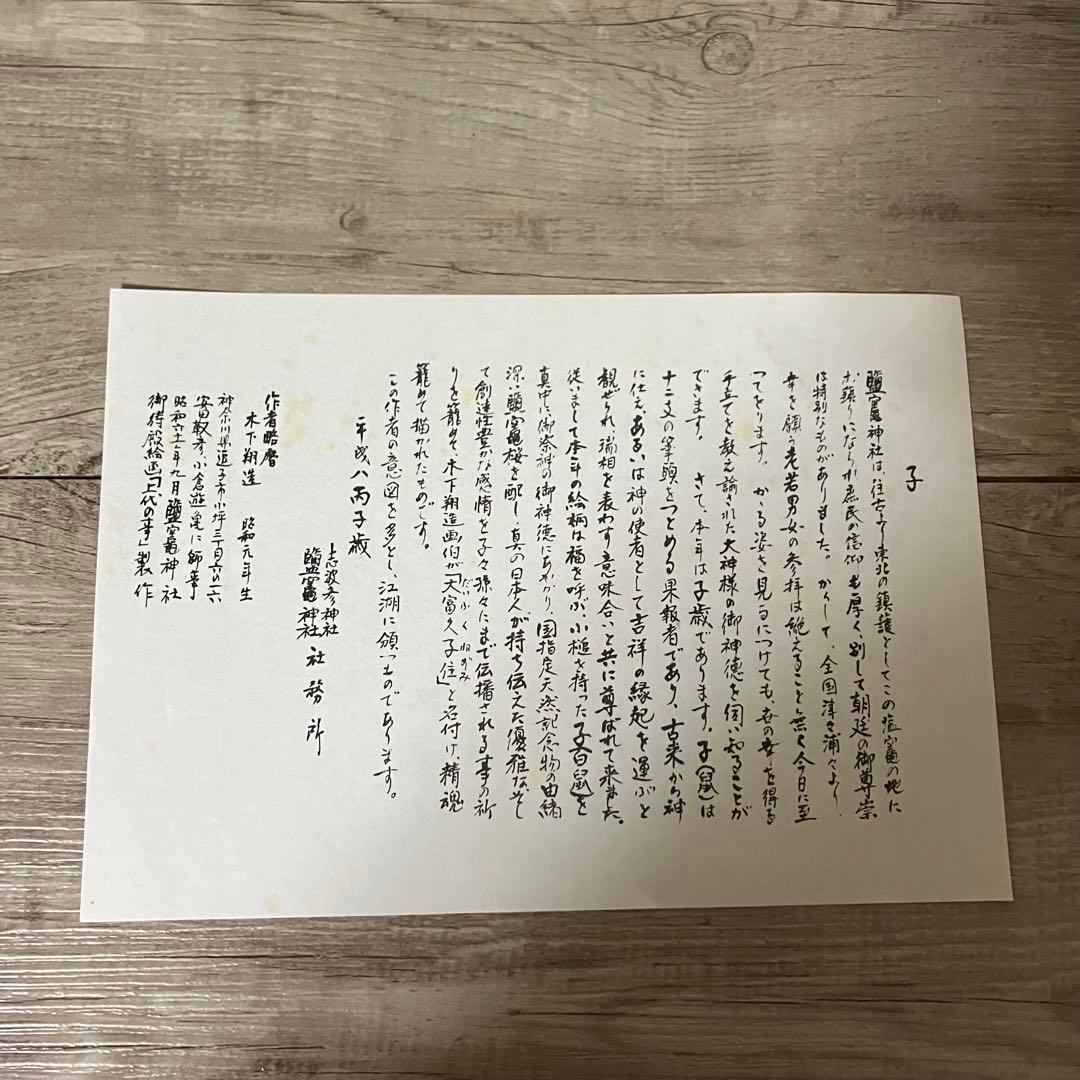 子
鹽竈神社は、往古より東北の鎮護としてこの塩竈の地に
お鎮りになられ庶民の信仰も厚く、別して朝廷の御尊崇
は特別なものがありました。かくして、全国津々浦々より
幸を願う老若男女の参拝は絶えること無く今日に至
つてをります。かゝる姿を見るにつけても、世の幸を得る
手立てを教え諭された大神様の御神徳を伺い知ることが
できます。さて、本年は子歳であります。子(鼠)は
十二支の筆頭をつとめる果報者であり、古来から神
に仕え、あるいは神の使者として吉祥の縁起を運ぶと
観ぜられ、瑞相を表わす意味合いと共に尊ばれて来ました。
従いまして本年の絵柄は福を呼ぶ、小槌を持った子(白鼠)を
真中に、御祭神の御神徳にあやかり、国指定天然記念物の由緒
深い鹽竈桜を配し、真の日本人が持ち伝えた優雅な、そし
て創造性豊かな感情を子々孫々にまで伝播される事の祈
りを籠めて、木下翔逅画伯が「大富久子住」と名付け、精魂
だいふくねずみ
籠めて描かれたものです。
この作者の意図を多とし、江湖に頒つものであります。
平成八丙子歳
志波彦神社
鹽竈神社 社務所
作者略暦
木下翔逅 昭和元年生
神奈川県逗子市小坪三丁目六の一六
安田靫彦、小倉遊亀に師事
昭和六十一年九月鹽竈神社
御待殿絵画「上代の幸」製作